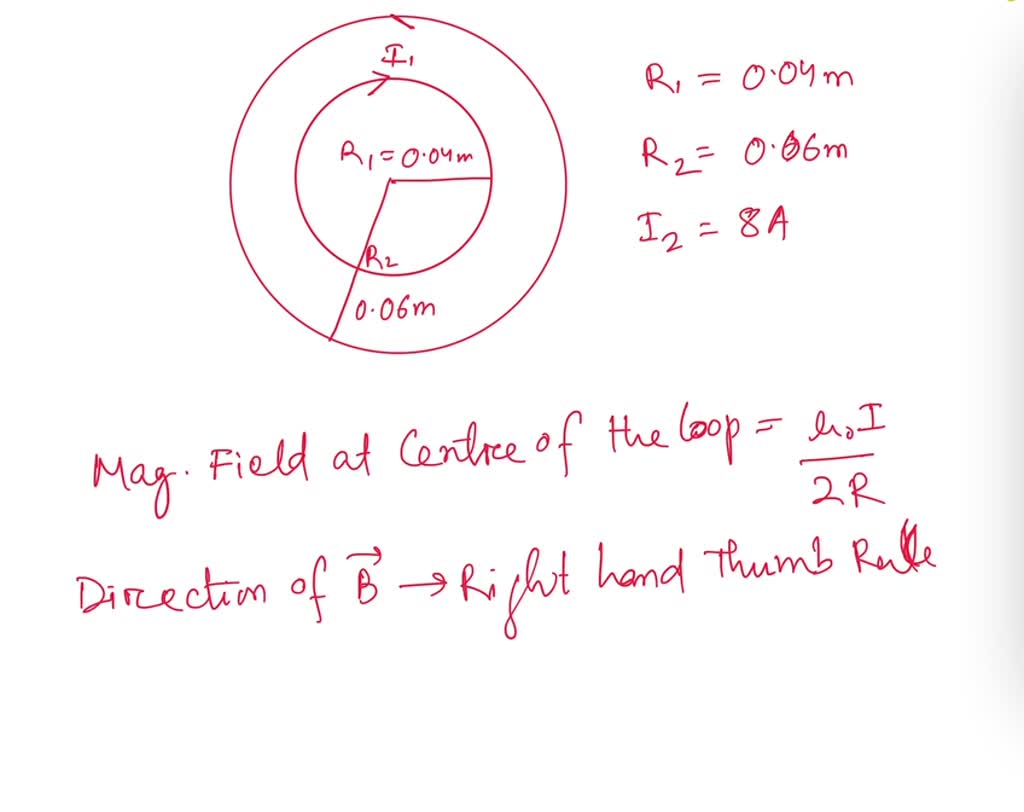 I₁
R₁ = 0.04m
R₂
0.06m
R₁ = 0.04m
R₂ = 0.06m
I₂ = 8A
Mag. Field at Centre of the loop = μ₀I / 2R
Direction of B⃗ → Right hand Thumb Rule